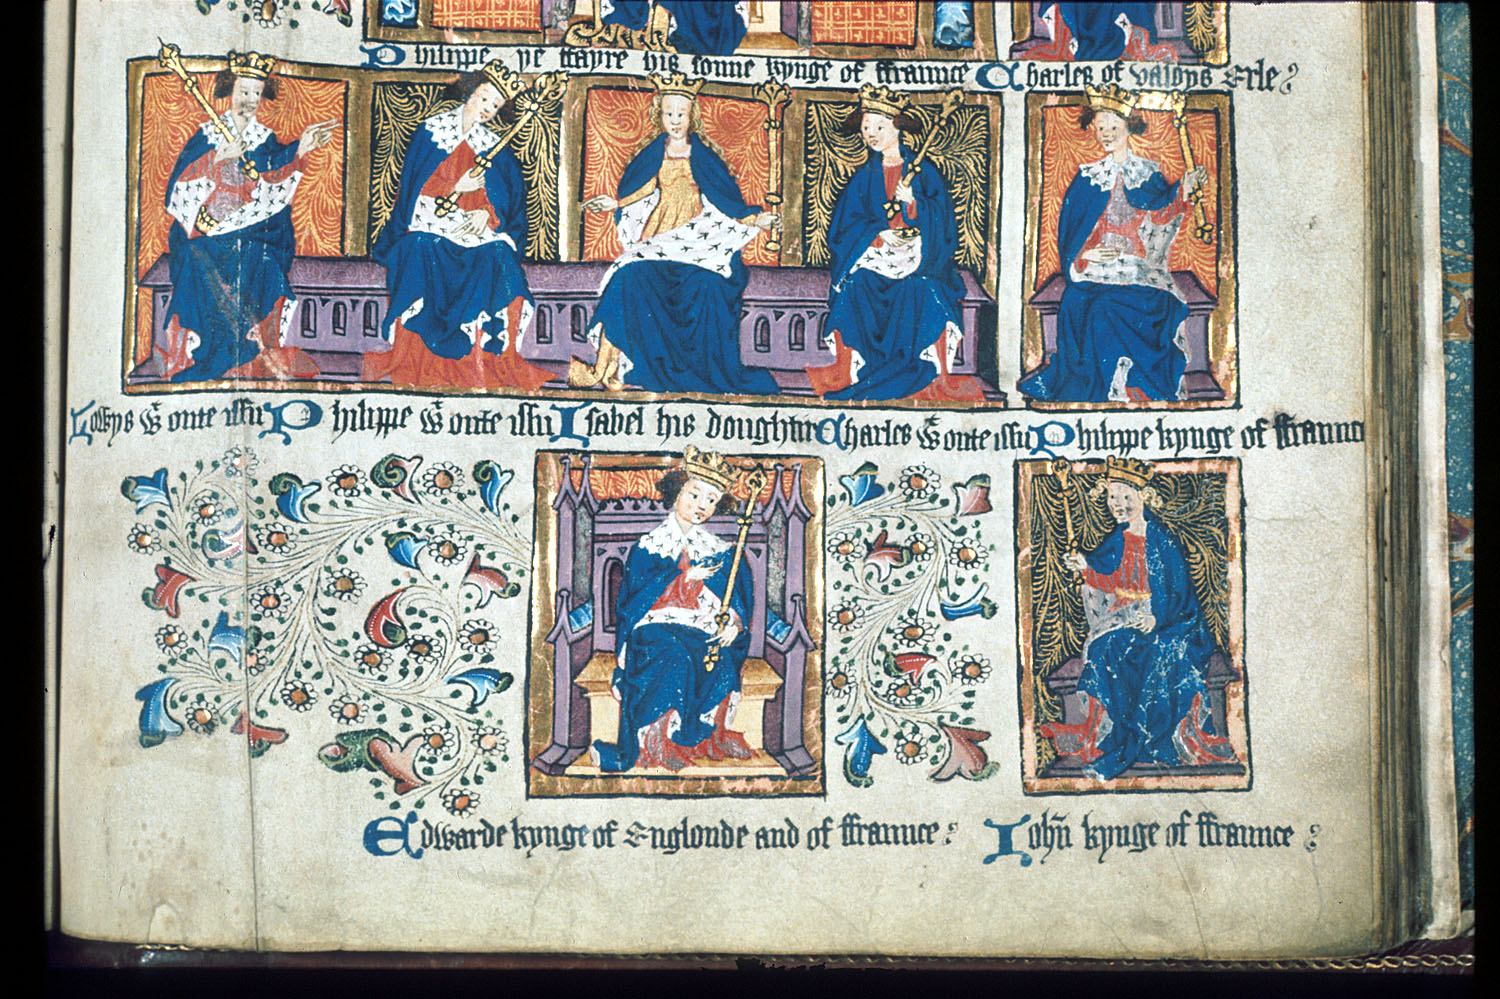 Philippe ye ffayre his sonne kynge of ffraunce Charles of valoys Erle
Lowys wt onte issu Philippe wt onte issu Isabel his doughter Charles wt onte issu Philippe kynge of ffraunce
Edwarde kynge of Englonde and of ffraunce Iohn kynge of ffraunce